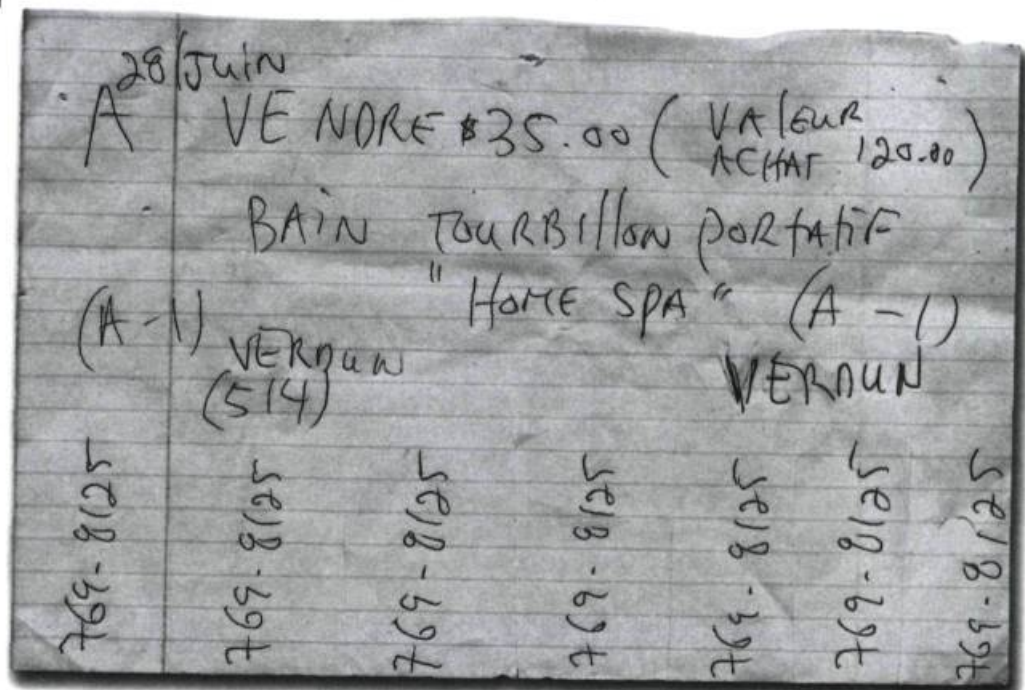 28/Juin
A VENDRE $35.00 (VALEUR ACHAT 120.00)
BAIN TOURBILLON PORTATIF
"HOME SPA" (A-1)
(A-1) VERDUN VERDUN
(514)
769-8125 769-8125 769-8125 769-8125 769-8125 769-8125 769-8125